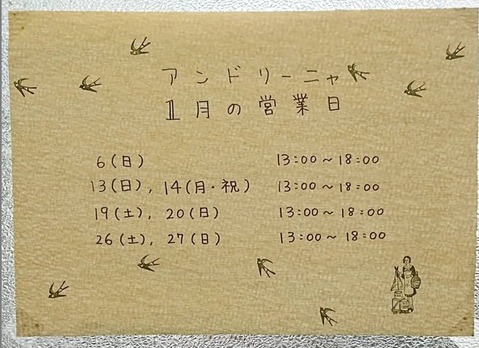 アンドリーニャ
1月の営業日
6(日) 13:00~18:00
13(日), 14(月・祝) 13:00~18:00
19(土), 20(日) 13:00~18:00
26(土), 27(日) 13:00~18:00